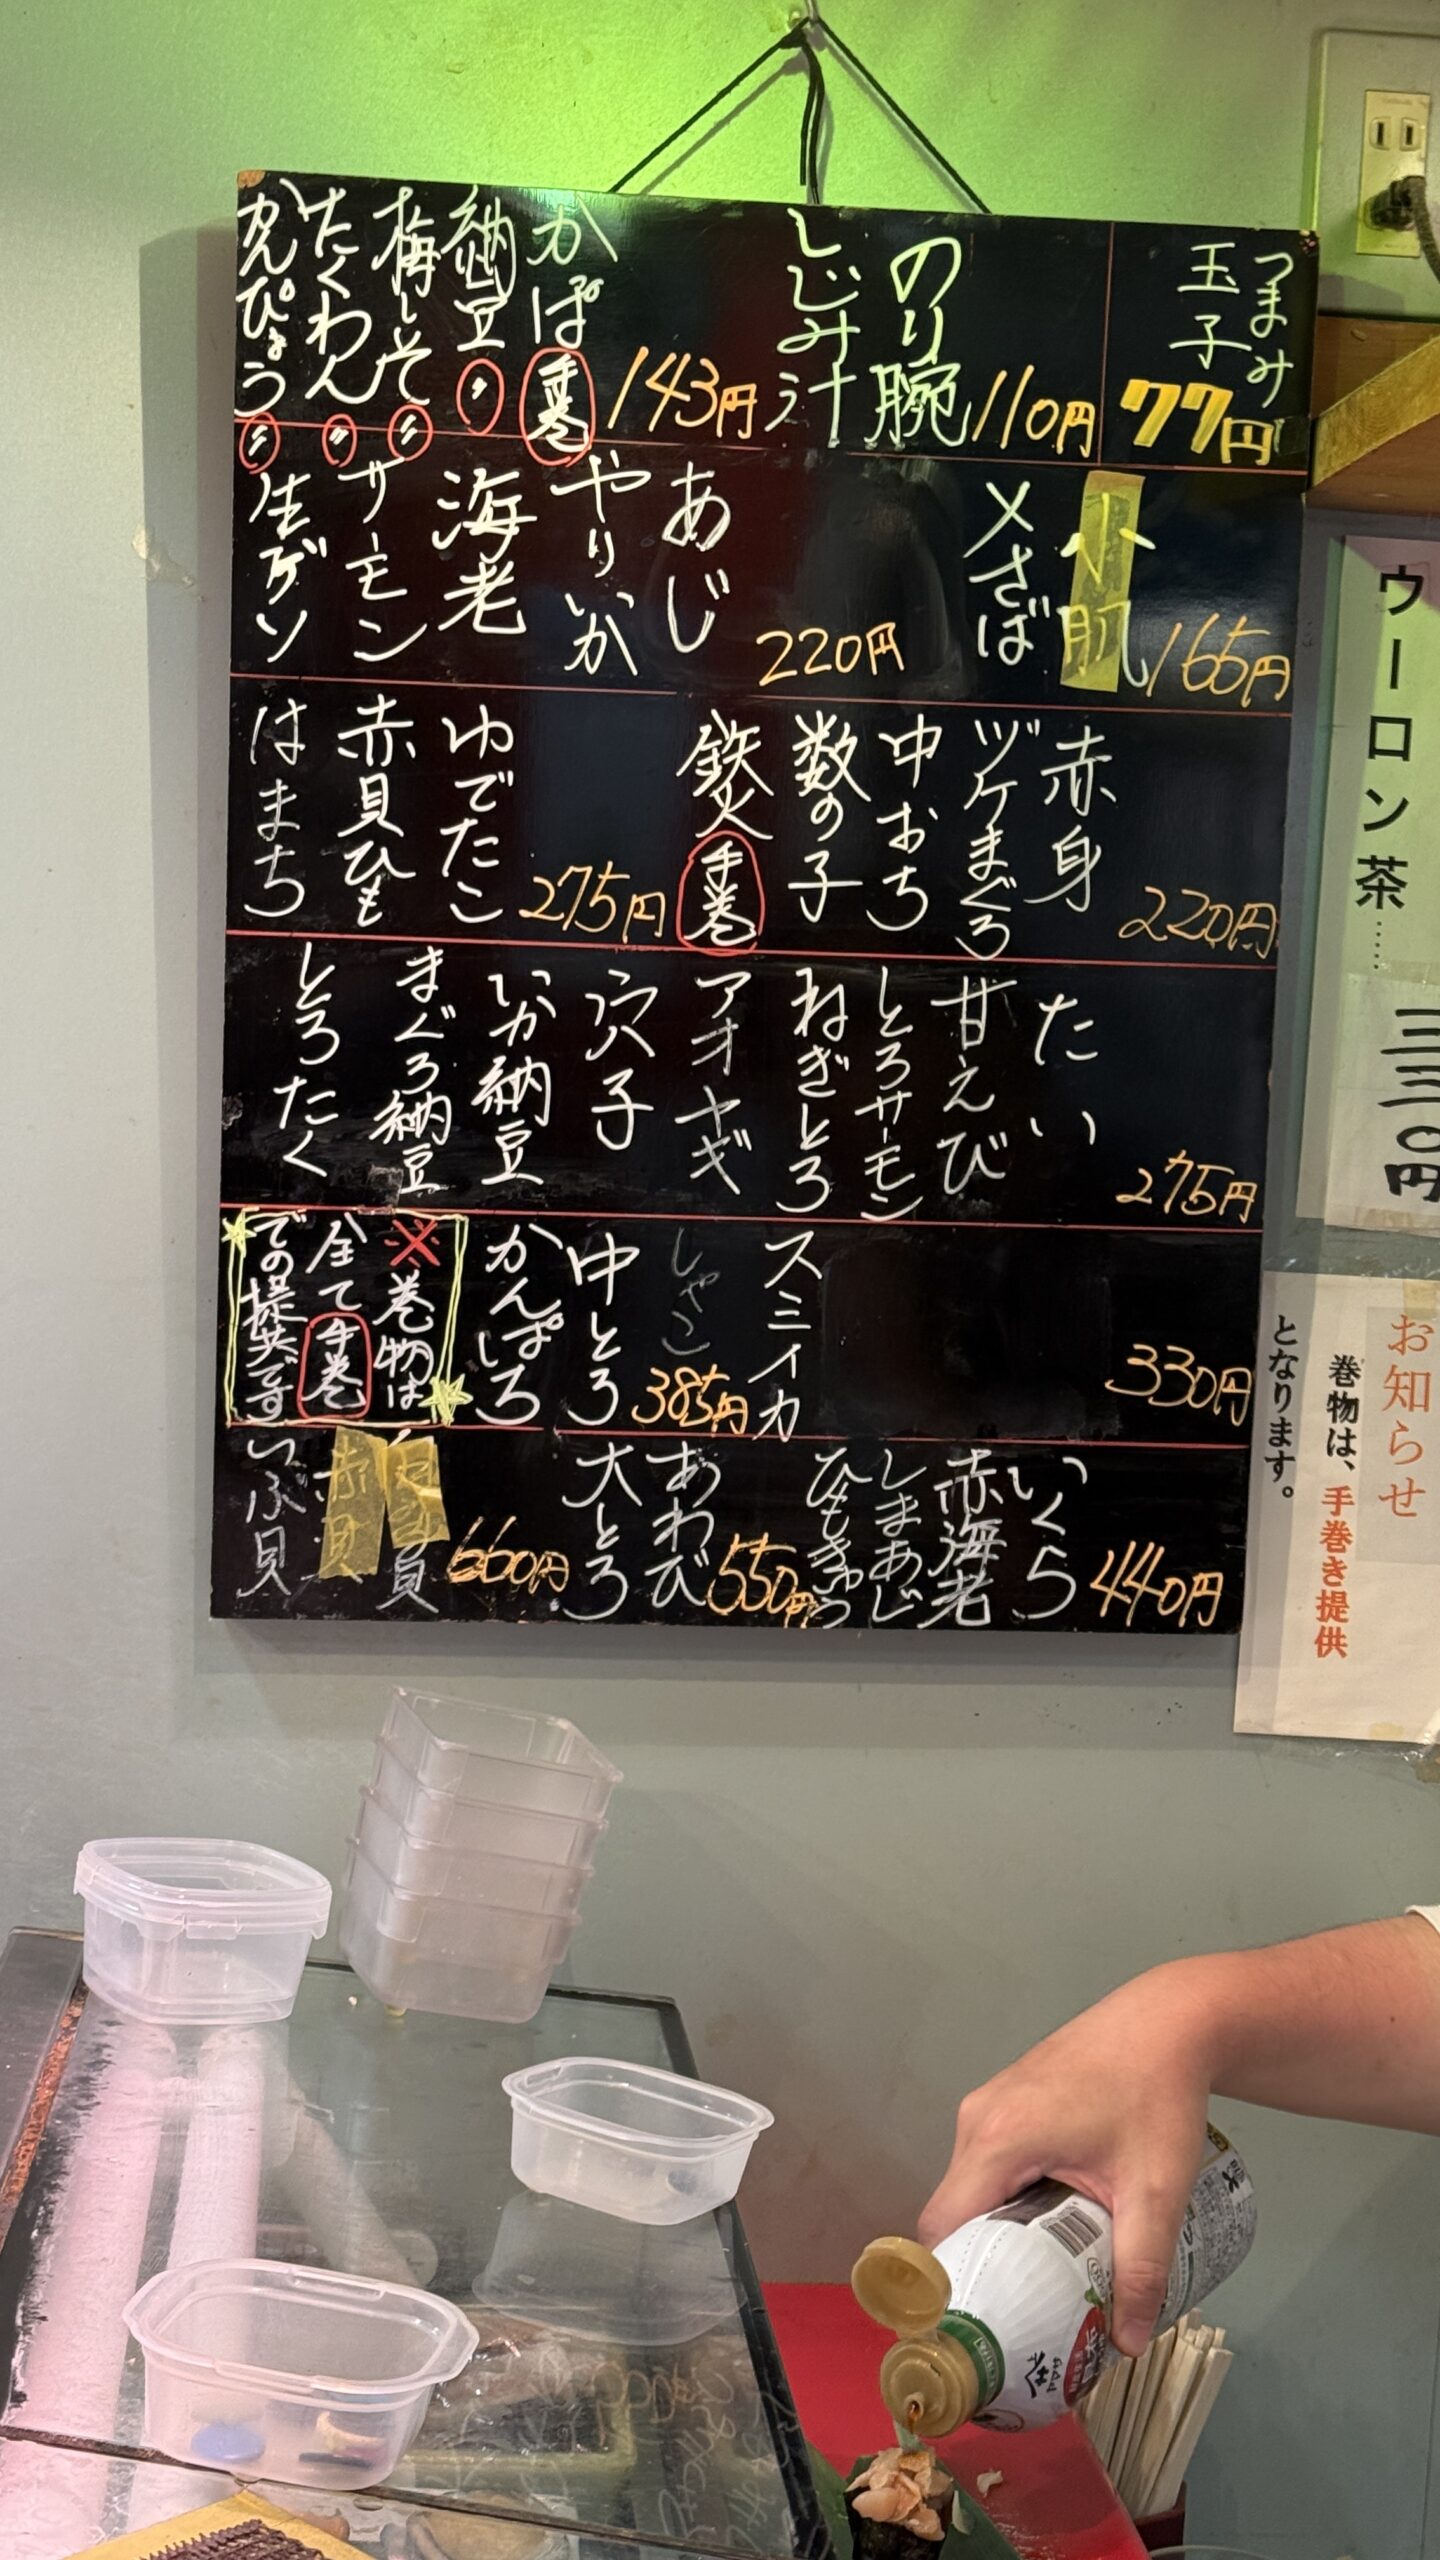 つまみ
玉子
77円
110円
のり腕
しじみ汁
143円
かっぱ手巻
納豆〃
梅しそ〃
たくわん〃
かんぴょう〃
165円
小肌
〆さば
220円
あじ
やりいか
海老
サーモン
生ゲソ
220円
赤身
ヅケまぐろ
中おち
数の子
鉄火手巻
275円
ゆでたこ
赤貝ひも
はまち
275円
たい
甘えび
とろサーモン
ねぎとろ
アオヤギ
穴子
いか納豆
まぐろ納豆
とろたく
330円
スミイカ
385円
しゃこ
中とろ
かんぱち
※巻物は
全て手巻
での提供です
440円
いくら
赤海老
しまあじ
ひもきゅう
550円
あわび
大とろ
660円
赤貝
つぶ貝
ウーロン茶……三三〇円
お知らせ
巻物は、手巻き提供
となります。